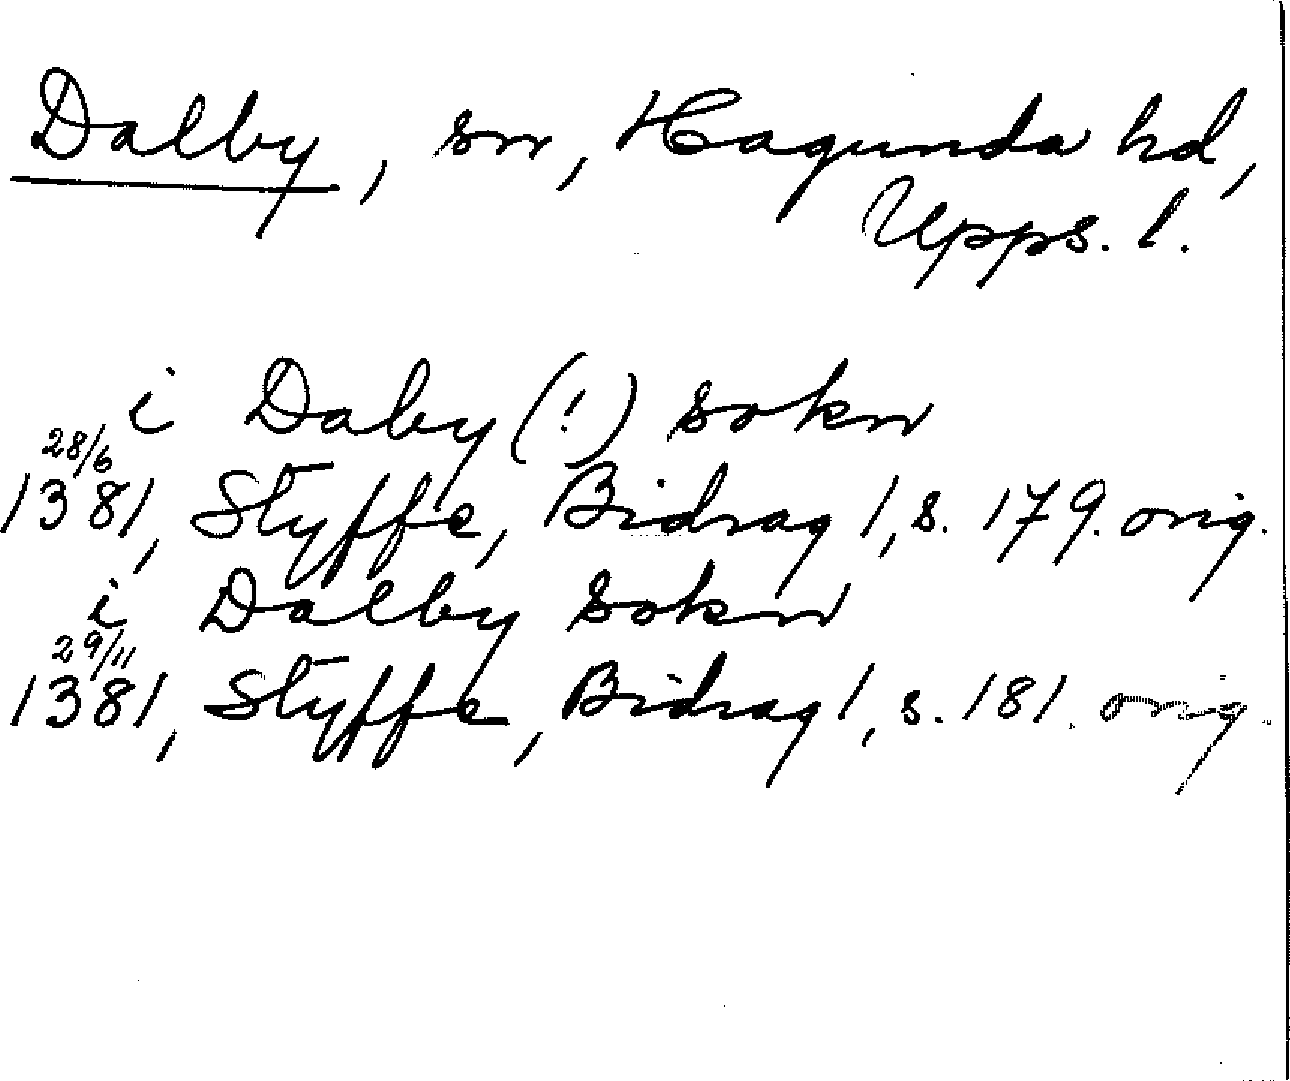 Dalby, sn, Hagunda hd,
Upps. l.
i Daby (!) sokn
28/6
1381, Styffe, Bidrag 1, s. 179. orig.
i Dalby sokn
29/11
1381, Styffe, Bidrag 1, s. 181. orig.